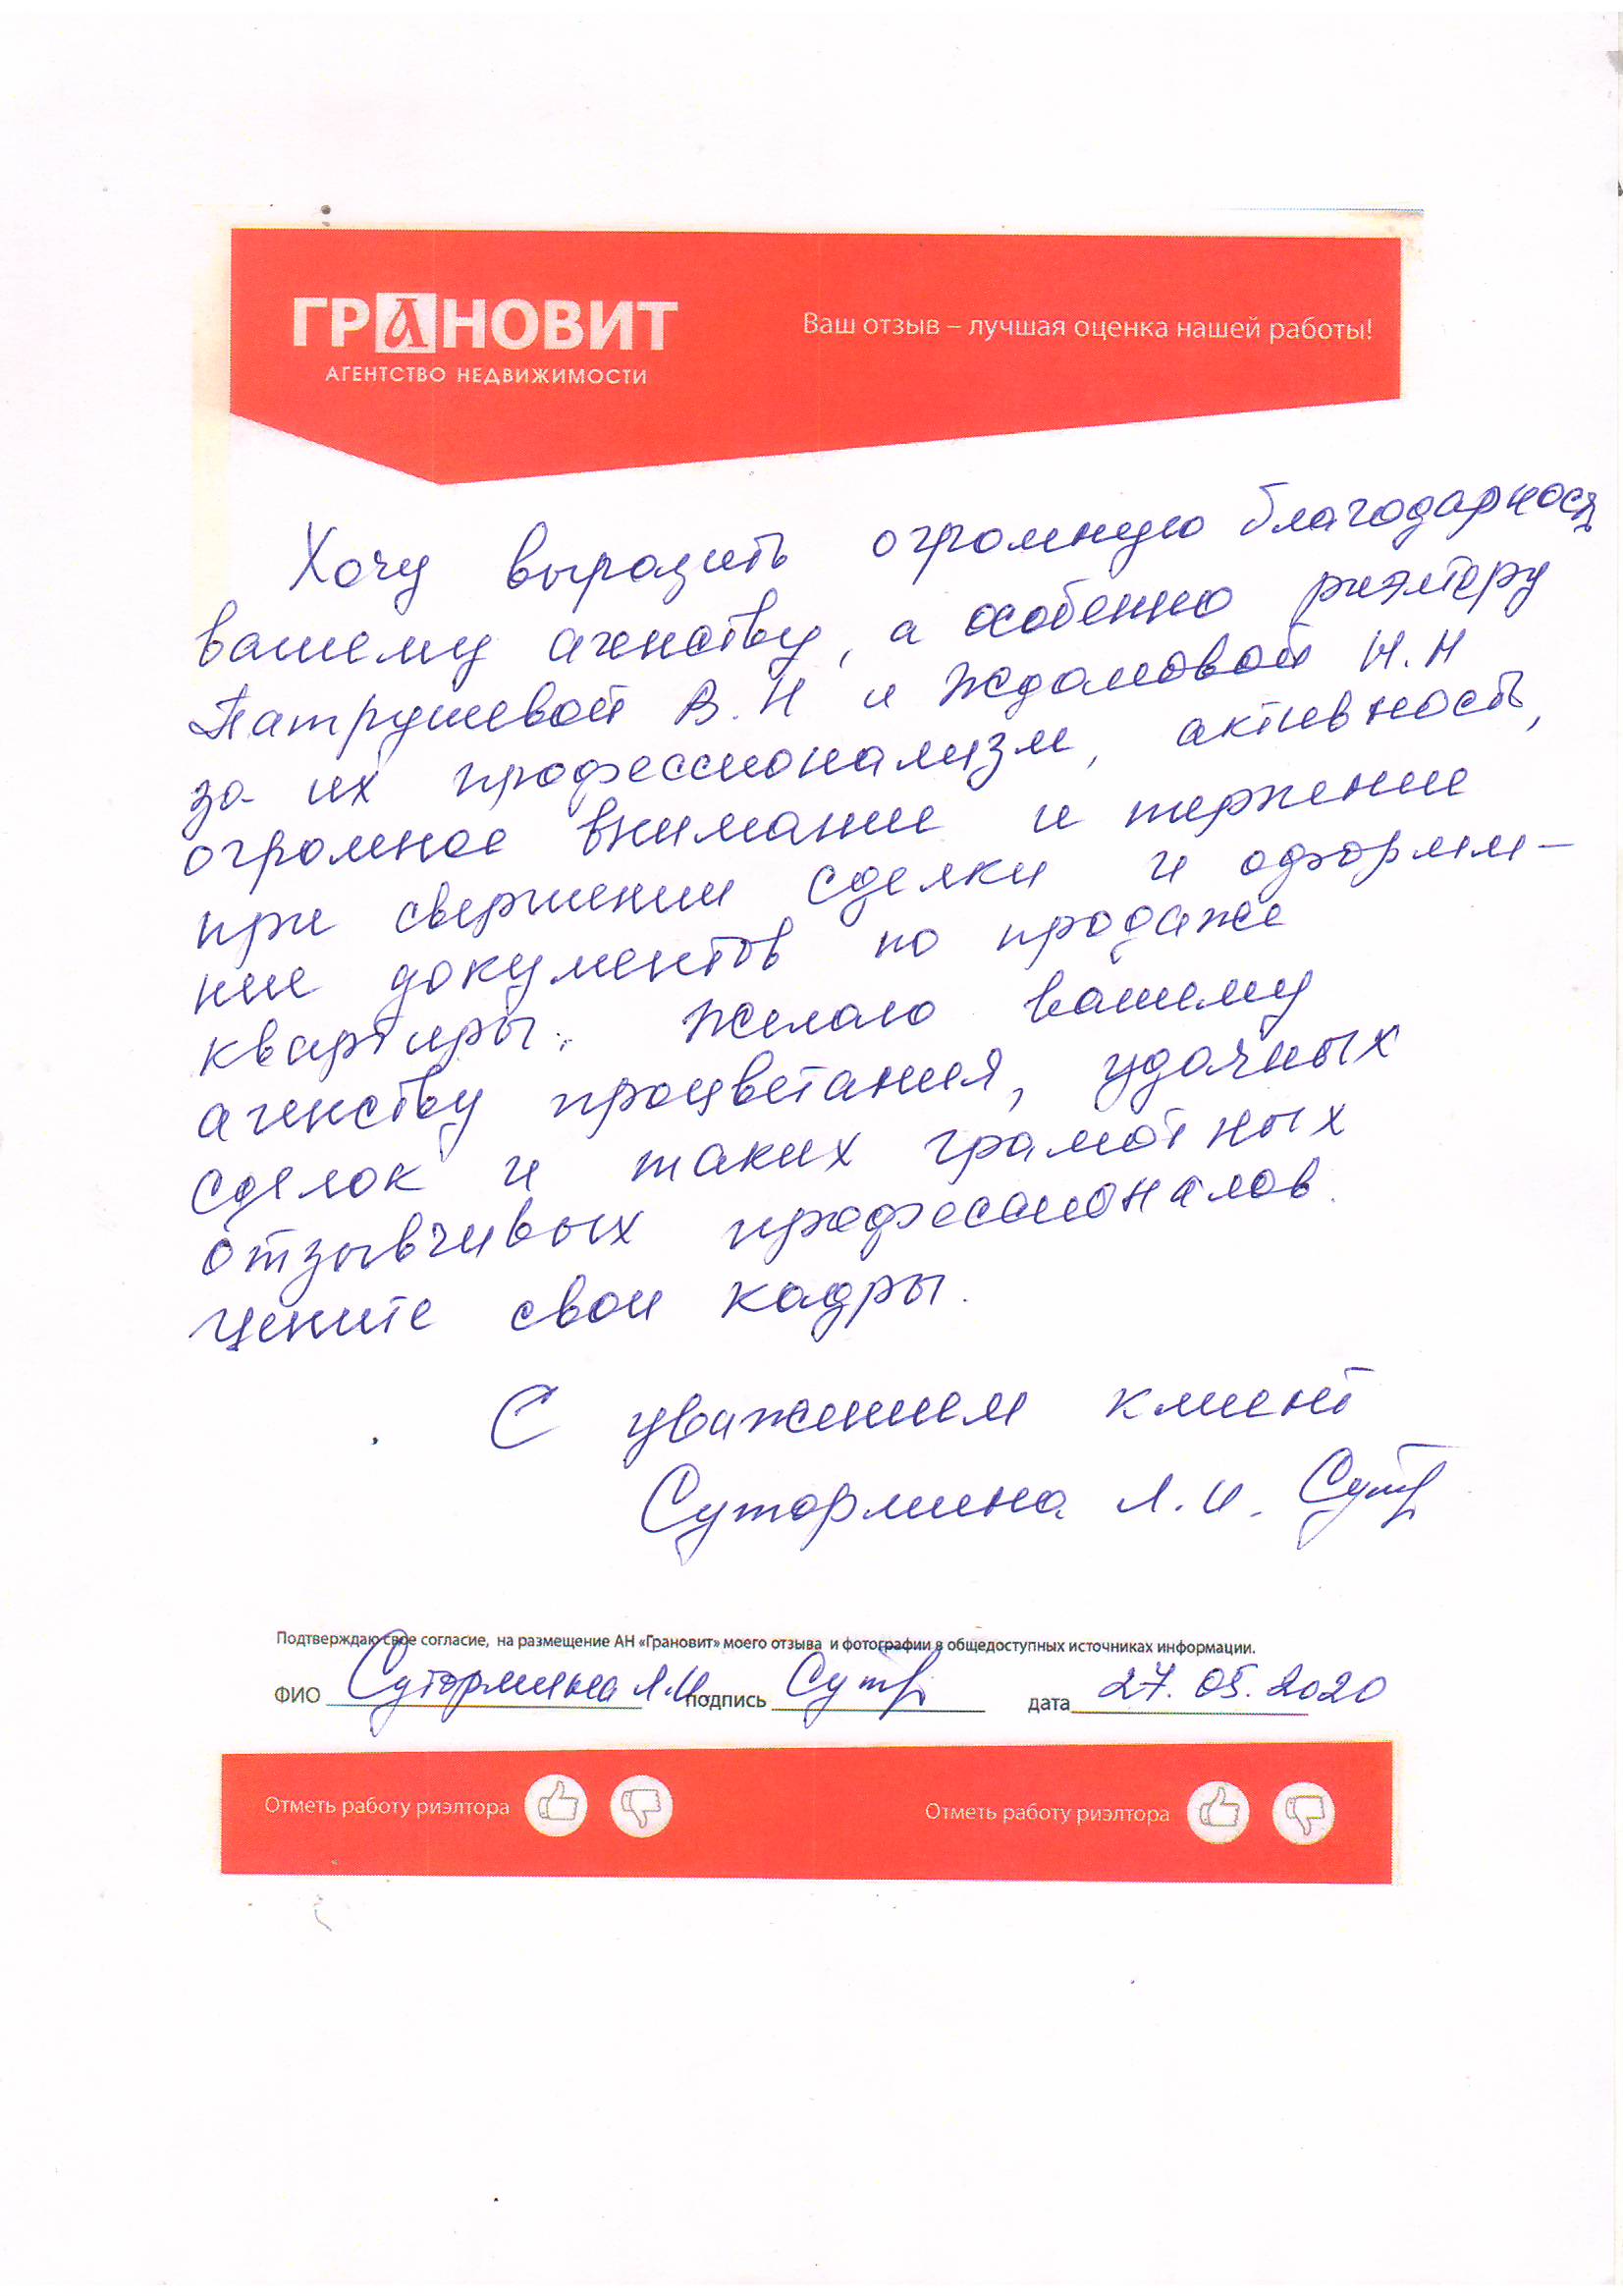 ГРАНОВИТ
АГЕНТСТВО НЕДВИЖИМОСТИ
Ваш отзыв – лучшая оценка нашей работы!
Хочу выразить огромную благодарность
вашему агенству, а особенно риэлтеру
Патрушевой В.Н и Ждамовой Н.Н
за их профессионализм, активность,
огромное внимание и терпение
при свершении сделки и оформле-
ние документов по продаже
квартиры. Желаю вашему
агенству процветания, удачных
сделок и таких грамотных
отзывчивых профессионалов.
Цените свои кадры.
С уважением клиент
Сутормина Л.И.
Подтверждаю свое согласие, на размещение АН «Грановит» моего отзыва и фотографии в общедоступных источниках информации.
ФИО Сутормина Л.И. подпись дата 27.05.2020
Отметь работу риэлтора Отметь работу риэлтора